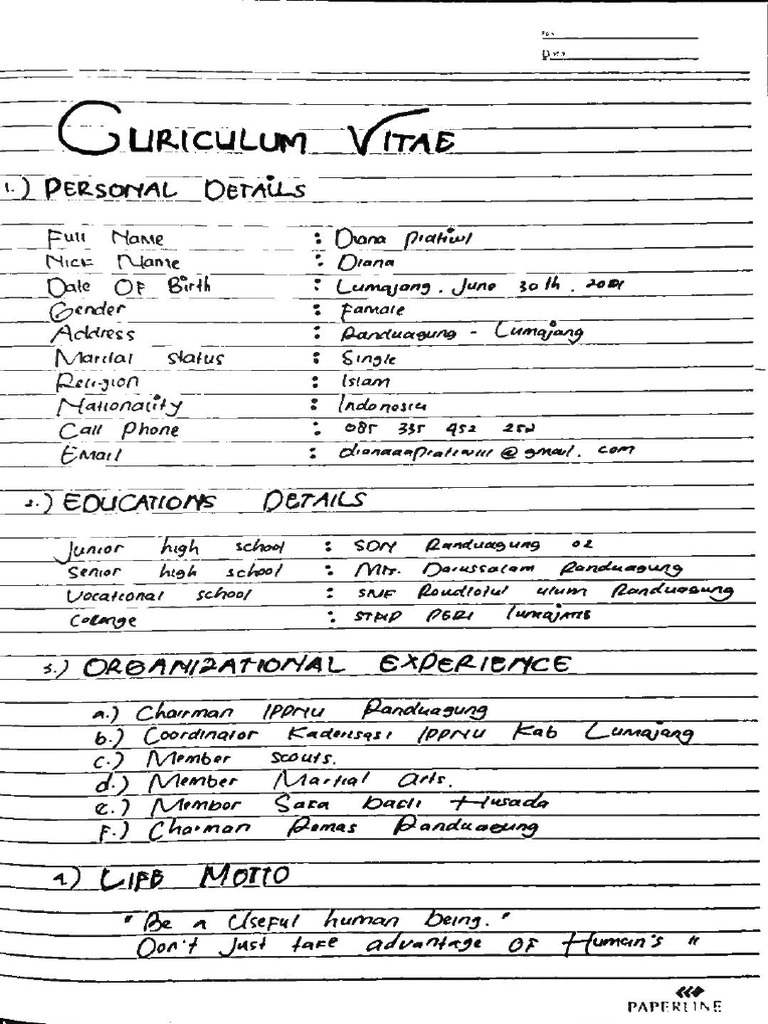 No
Date
CURICULUM VITAE
1.) PERSONAL DETAILS
Full Name : Diana Pratiwi
Nick Name : Diana
Date OF Birth : Lumajang, June 30th, 2001
Gender : Famale
Address : Randuagung - Lumajang
Marital status : Single
Religion : Islam
Nationality : Indonesia
Call Phone : 085 335 452 252
Email : @gmail.com
2.) EDUCATIONS DETAILS
Junior high school : SDN Randuagung 02
Senior high school : Mts. Darussalam Randuagung
Vocational school : Roudlotul ulum Randuagung
Collange : STKIP PGRI lumajang
3.) ORGANIZATIONAL EXPERIENCE
a.) Chairman IPPNU Randuagung
b.) Coordinator Kaderisasi IPPNU Kab Lumajang
c.) Member scouts.
d.) Member Martial Arts.
e.) Member Saka bakti Husada
F.) Chairman Remas Randuagung
4.) LIFE MOTTO
"Be a Useful human being."
Don't Just take advantage OF Human's "
PAPERLINE